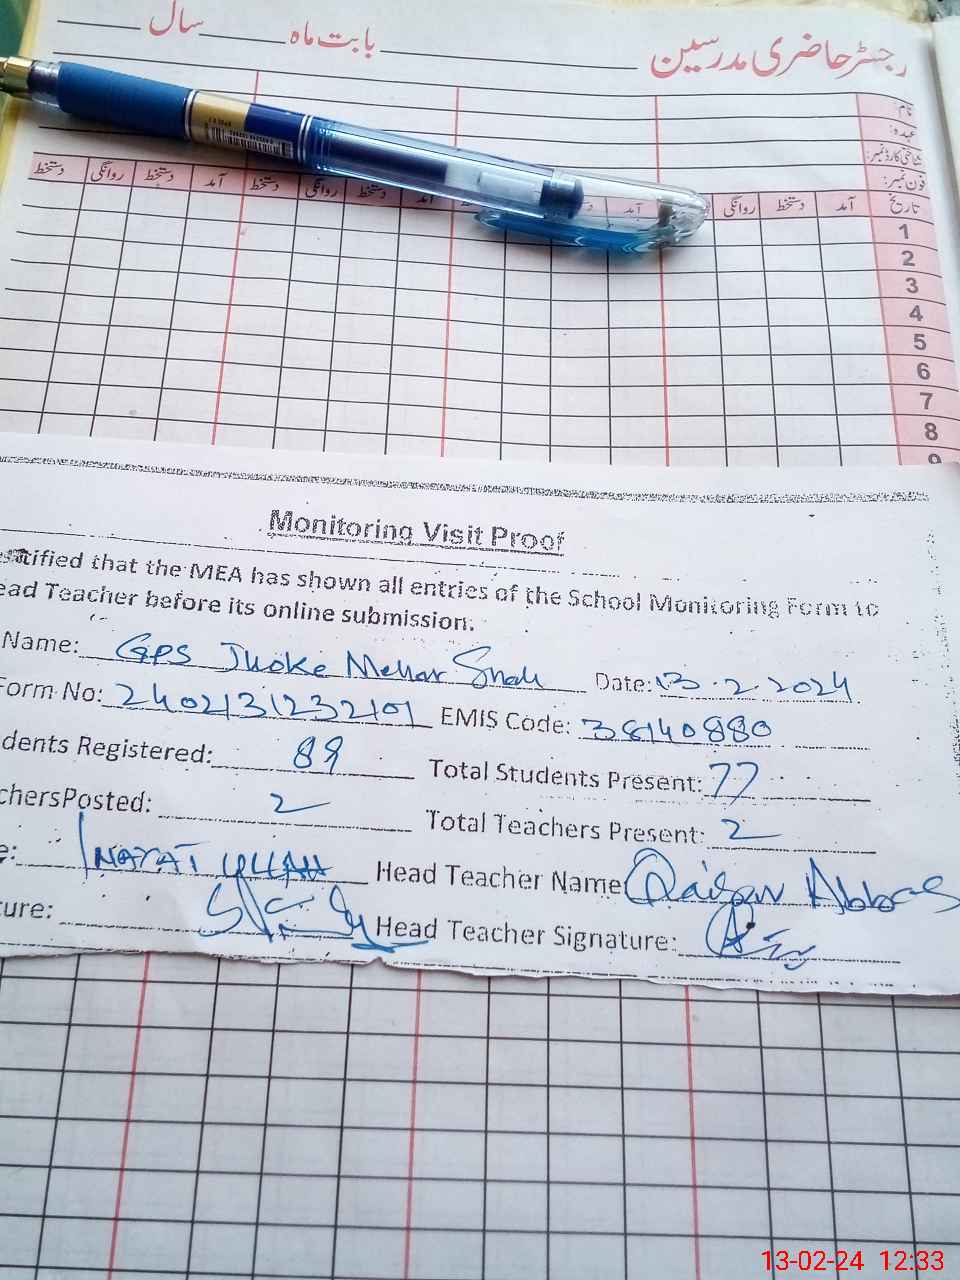 رجسٹر حاضری مدرسین بابت ماہ سال
نام:
عہدہ:
شناختی کارڈ نمبر:
فون نمبر:
تاریخ آمد دستخط روانگی آمد دستخط روانگی آمد دستخط روانگی دستخط
1
2
3
4
5
6
7
8
9
Monitoring Visit Proof
tified that the MEA has shown all entries of the School Monitoring Form to
ead Teacher before its online submission.
Name: GPS Jhoke Mehar Shah Date: 13.2.2024
Form No: 2402131232101 EMIS Code: 38140880
dents Registered: 89 Total Students Present: 77
chersPosted: 2 Total Teachers Present: 2
e: INAYAT ULLAH Head Teacher Name Qaisar Abbas
ture: Head Teacher Signature:
13-02-24 12:33